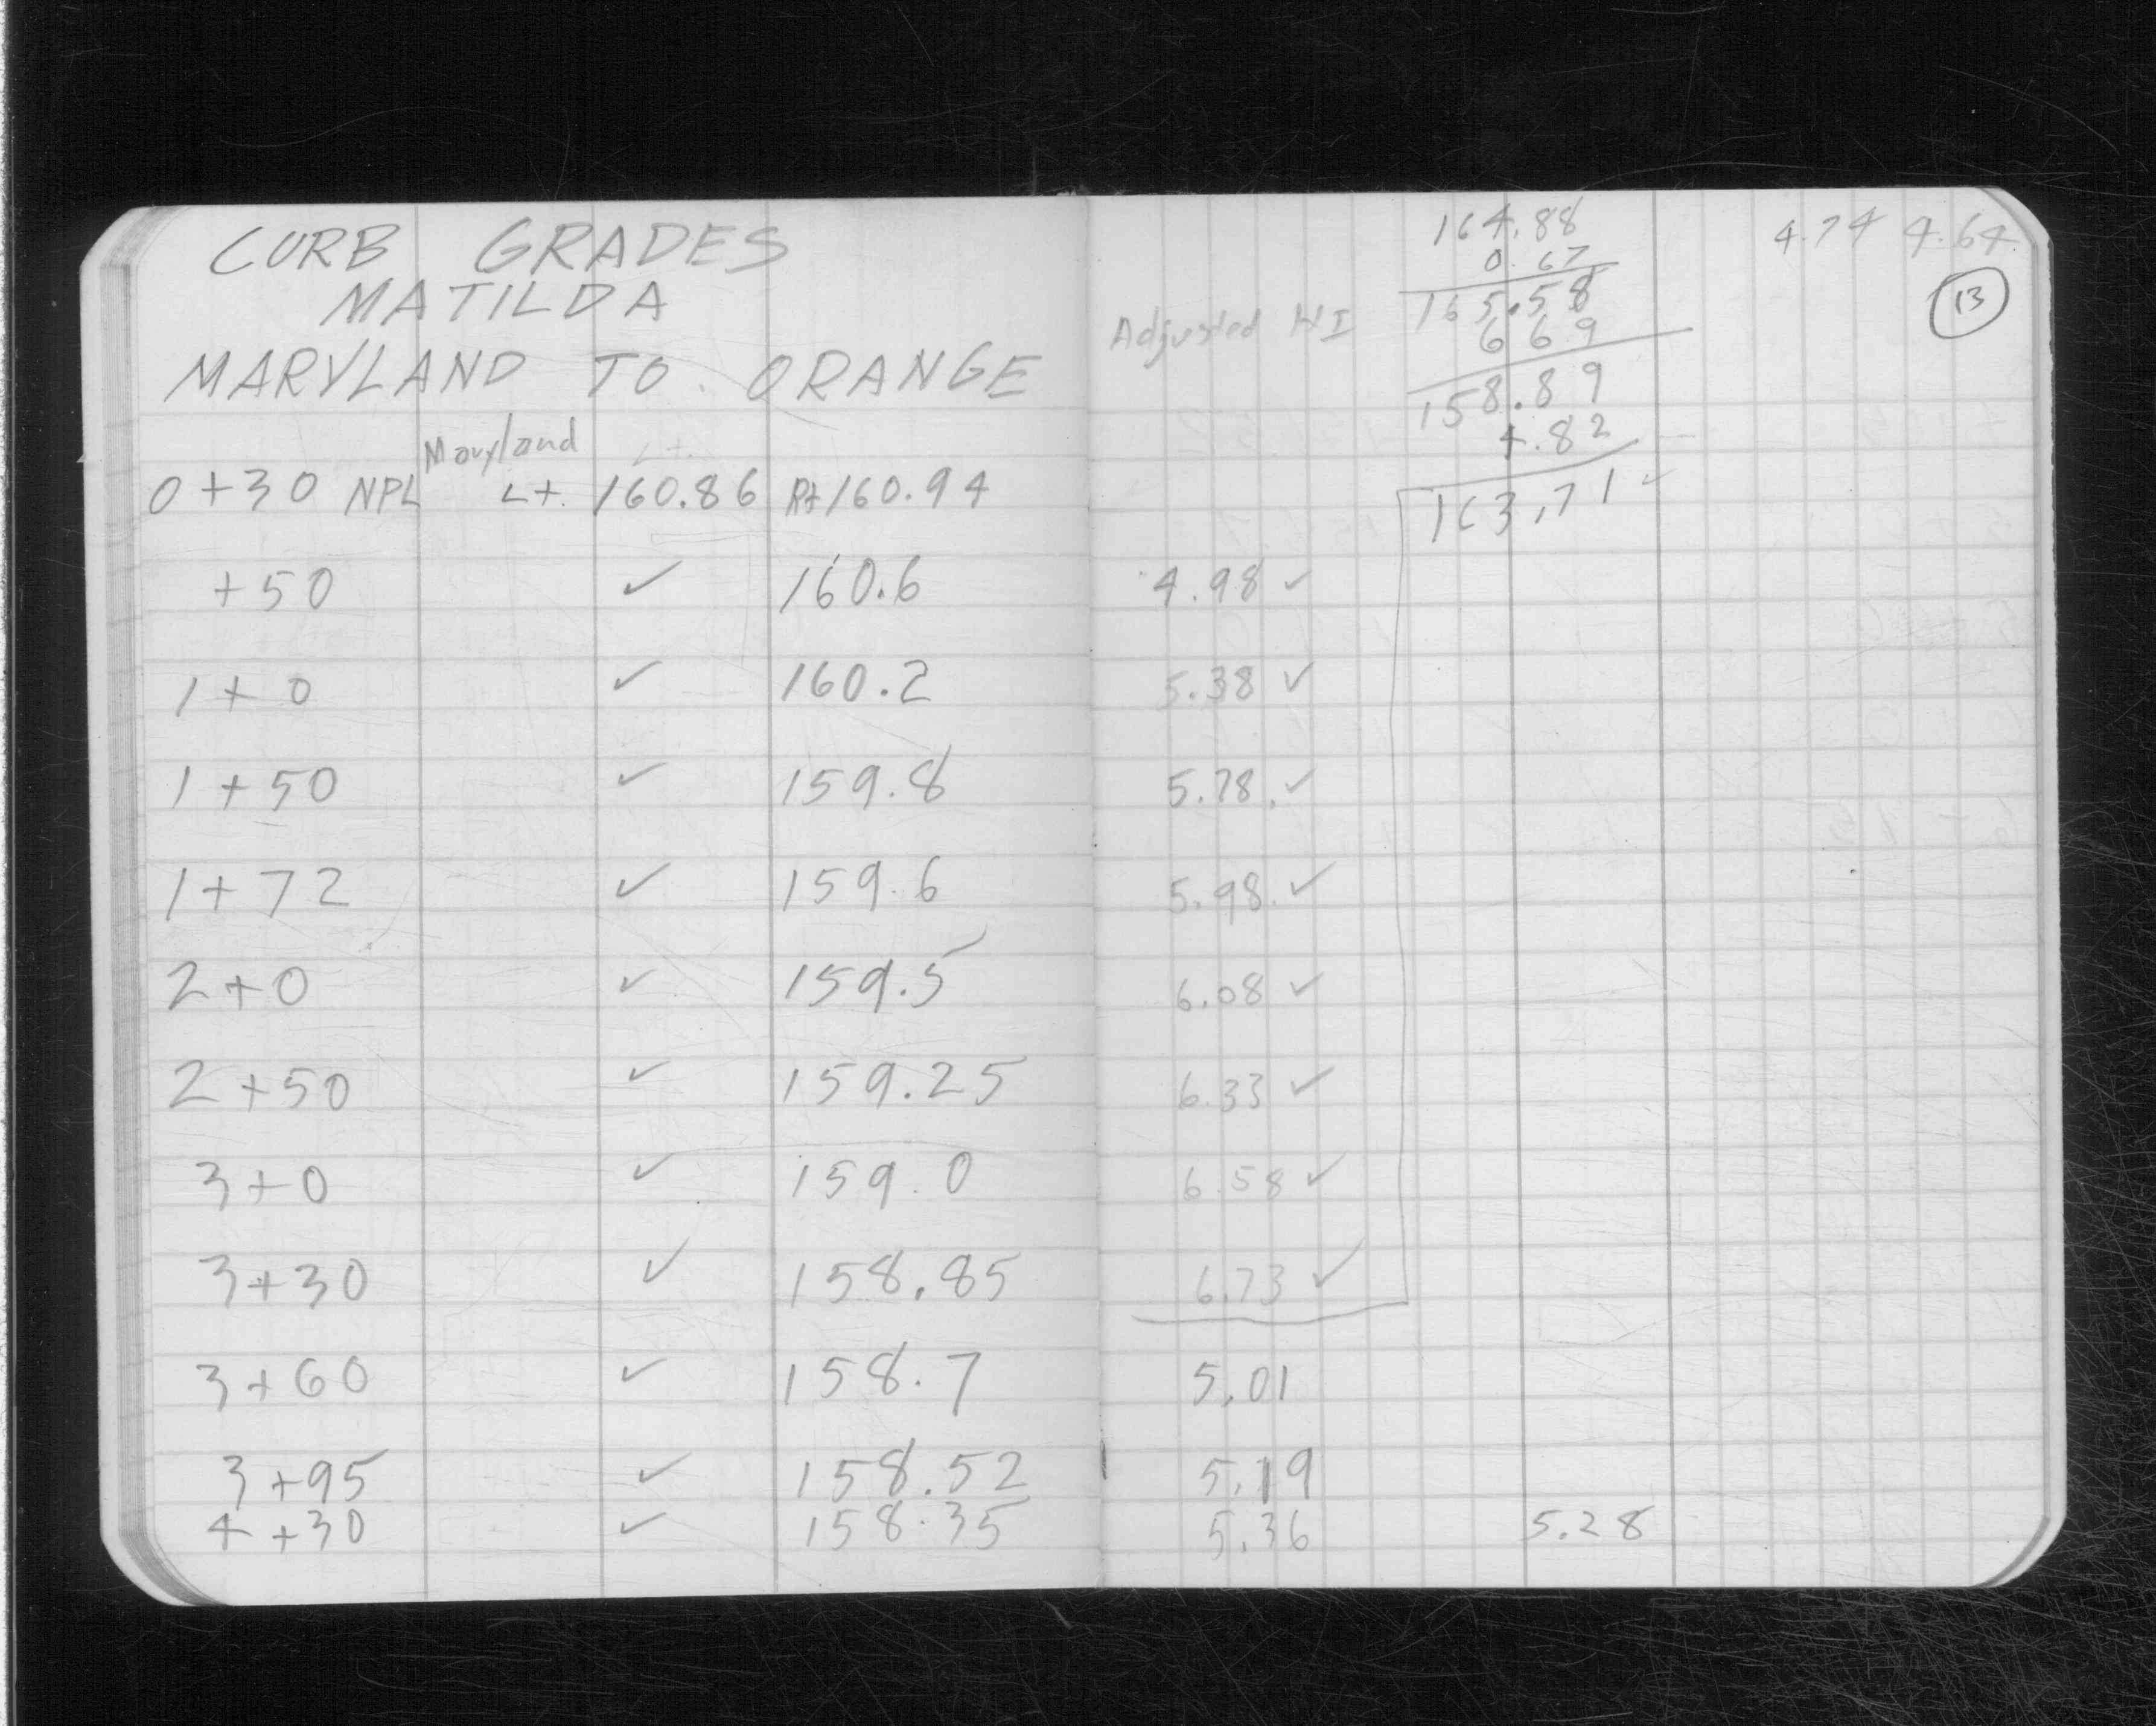 CURB GRADES
MATILDA
MARYLAND TO ORANGE
Maryland Lt.
0+30 NPL Lt. 160.86 Rt 160.94
+50 ✓ 160.6
1+0 ✓ 160.2
1+50 ✓ 159.8
1+72 ✓ 159.6
2+0 ✓ 159.5
2+50 ✓ 159.25
3+0 ✓ 159.0
3+30 ✓ 158.85
3+60 ✓ 158.7
3+95 ✓ 158.52
4+30 ✓ 158.35
164.88 4.74 4.64
0.67
13
Adjusted HI 165.58
6 69
158.89
4.82
163.71 ✓
4.98 ✓
5.38 ✓
5.78 ✓
5.98 ✓
6.08 ✓
6.33 ✓
6.58 ✓
6.73 ✓
5.01
5.19
5.36 5.28